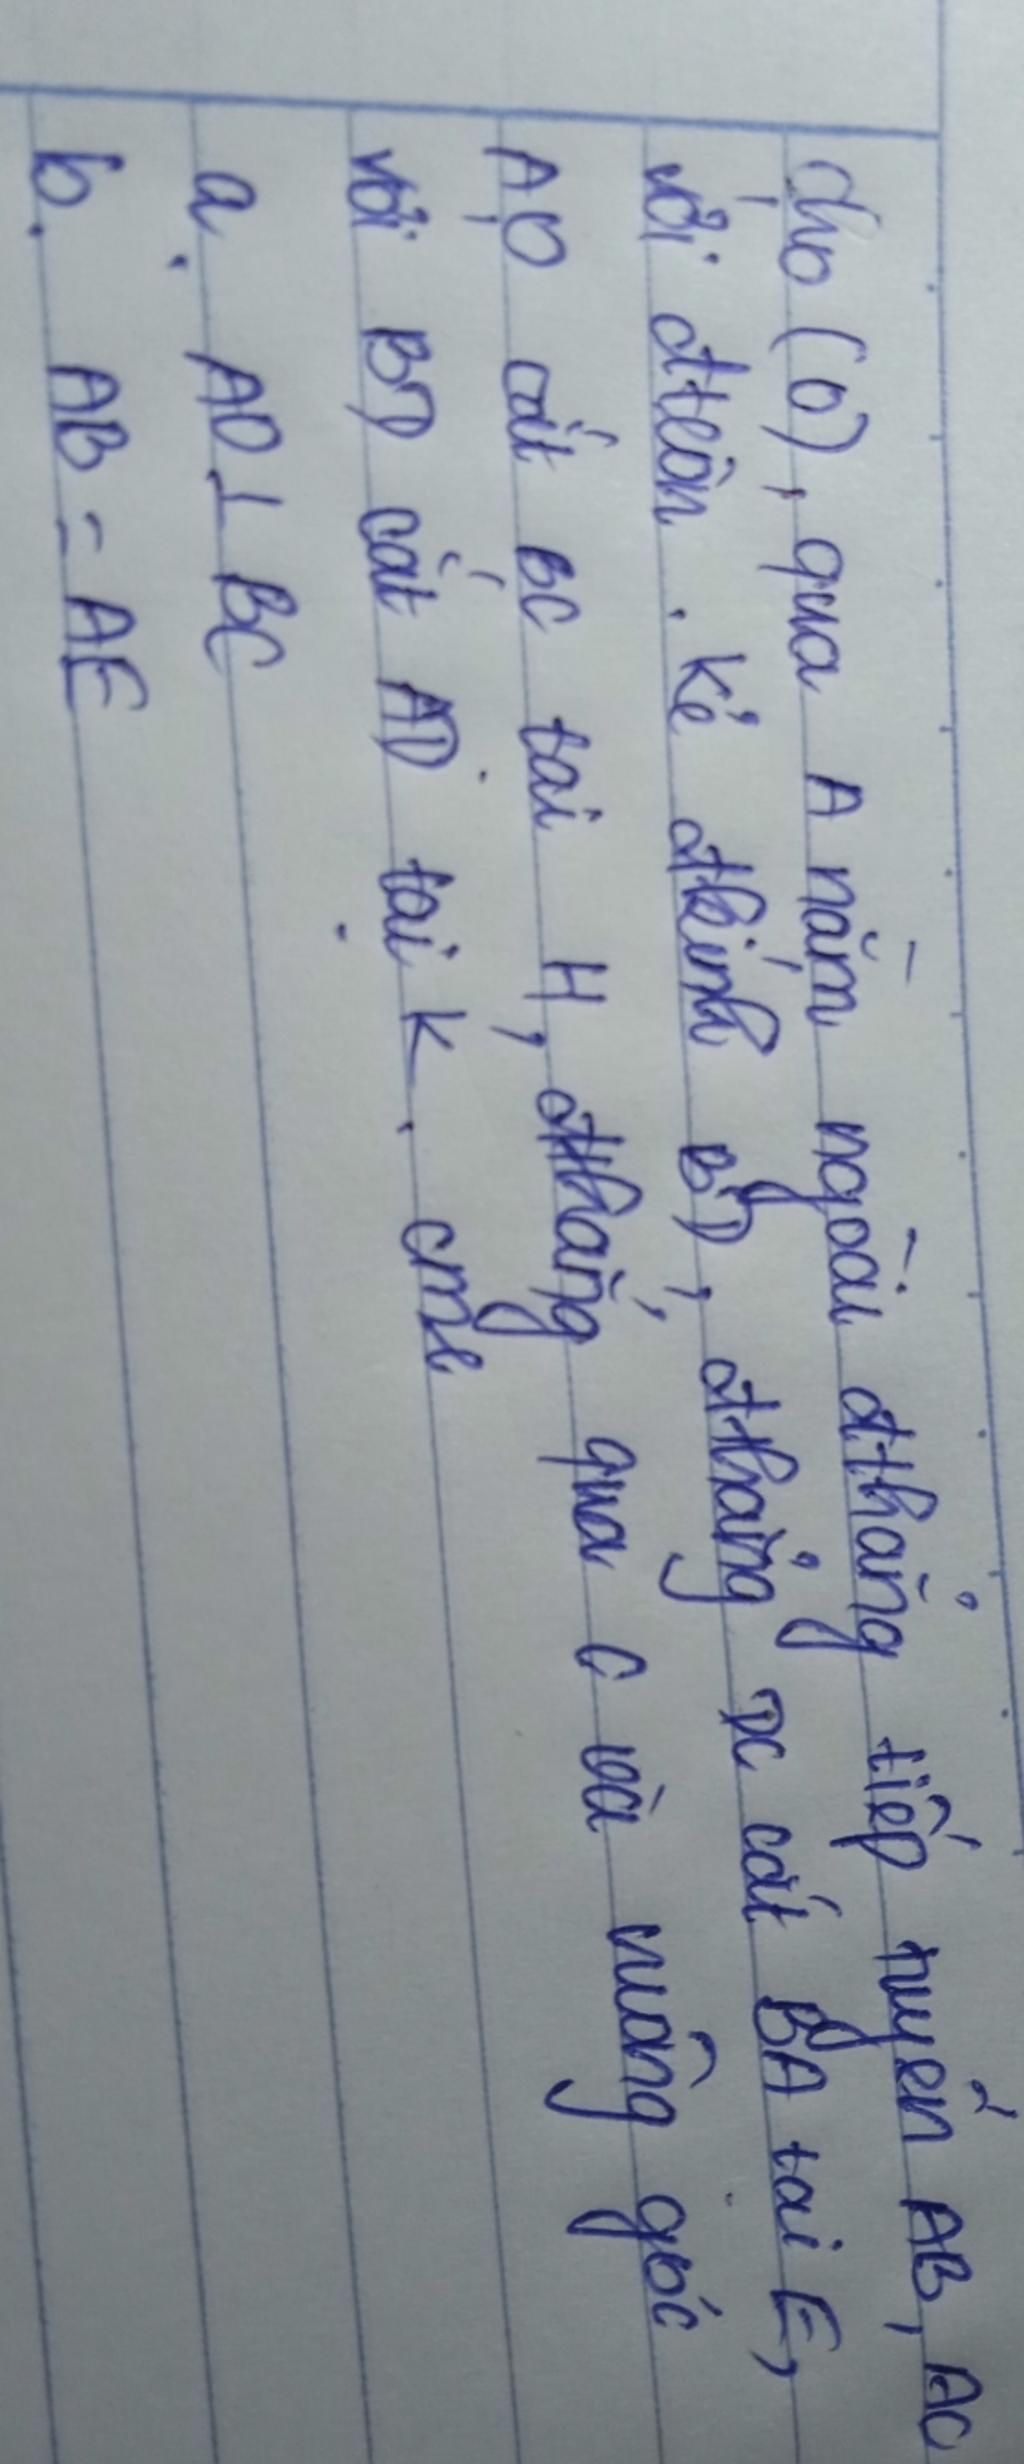 cho (O), qua A nằm ngoài đthẳng tiếp tuyến AB, AC
với đtròn. Kẻ đkính BD, đthẳng DC cắt BA tại E,
AO cắt BC tại H, đthẳng qua C và vuông góc
với BD cắt AD tại K. cm:
a. AO ⊥ BC
b. AB = AE